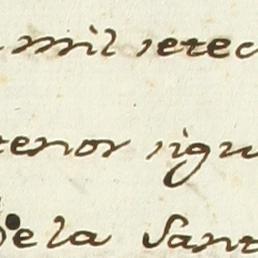 mil setec
tenor sigu
De la Sant